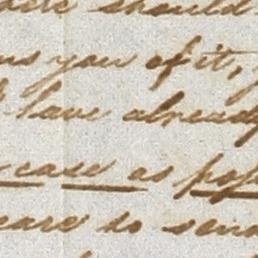 should
you of it,
have already
case as
care to send